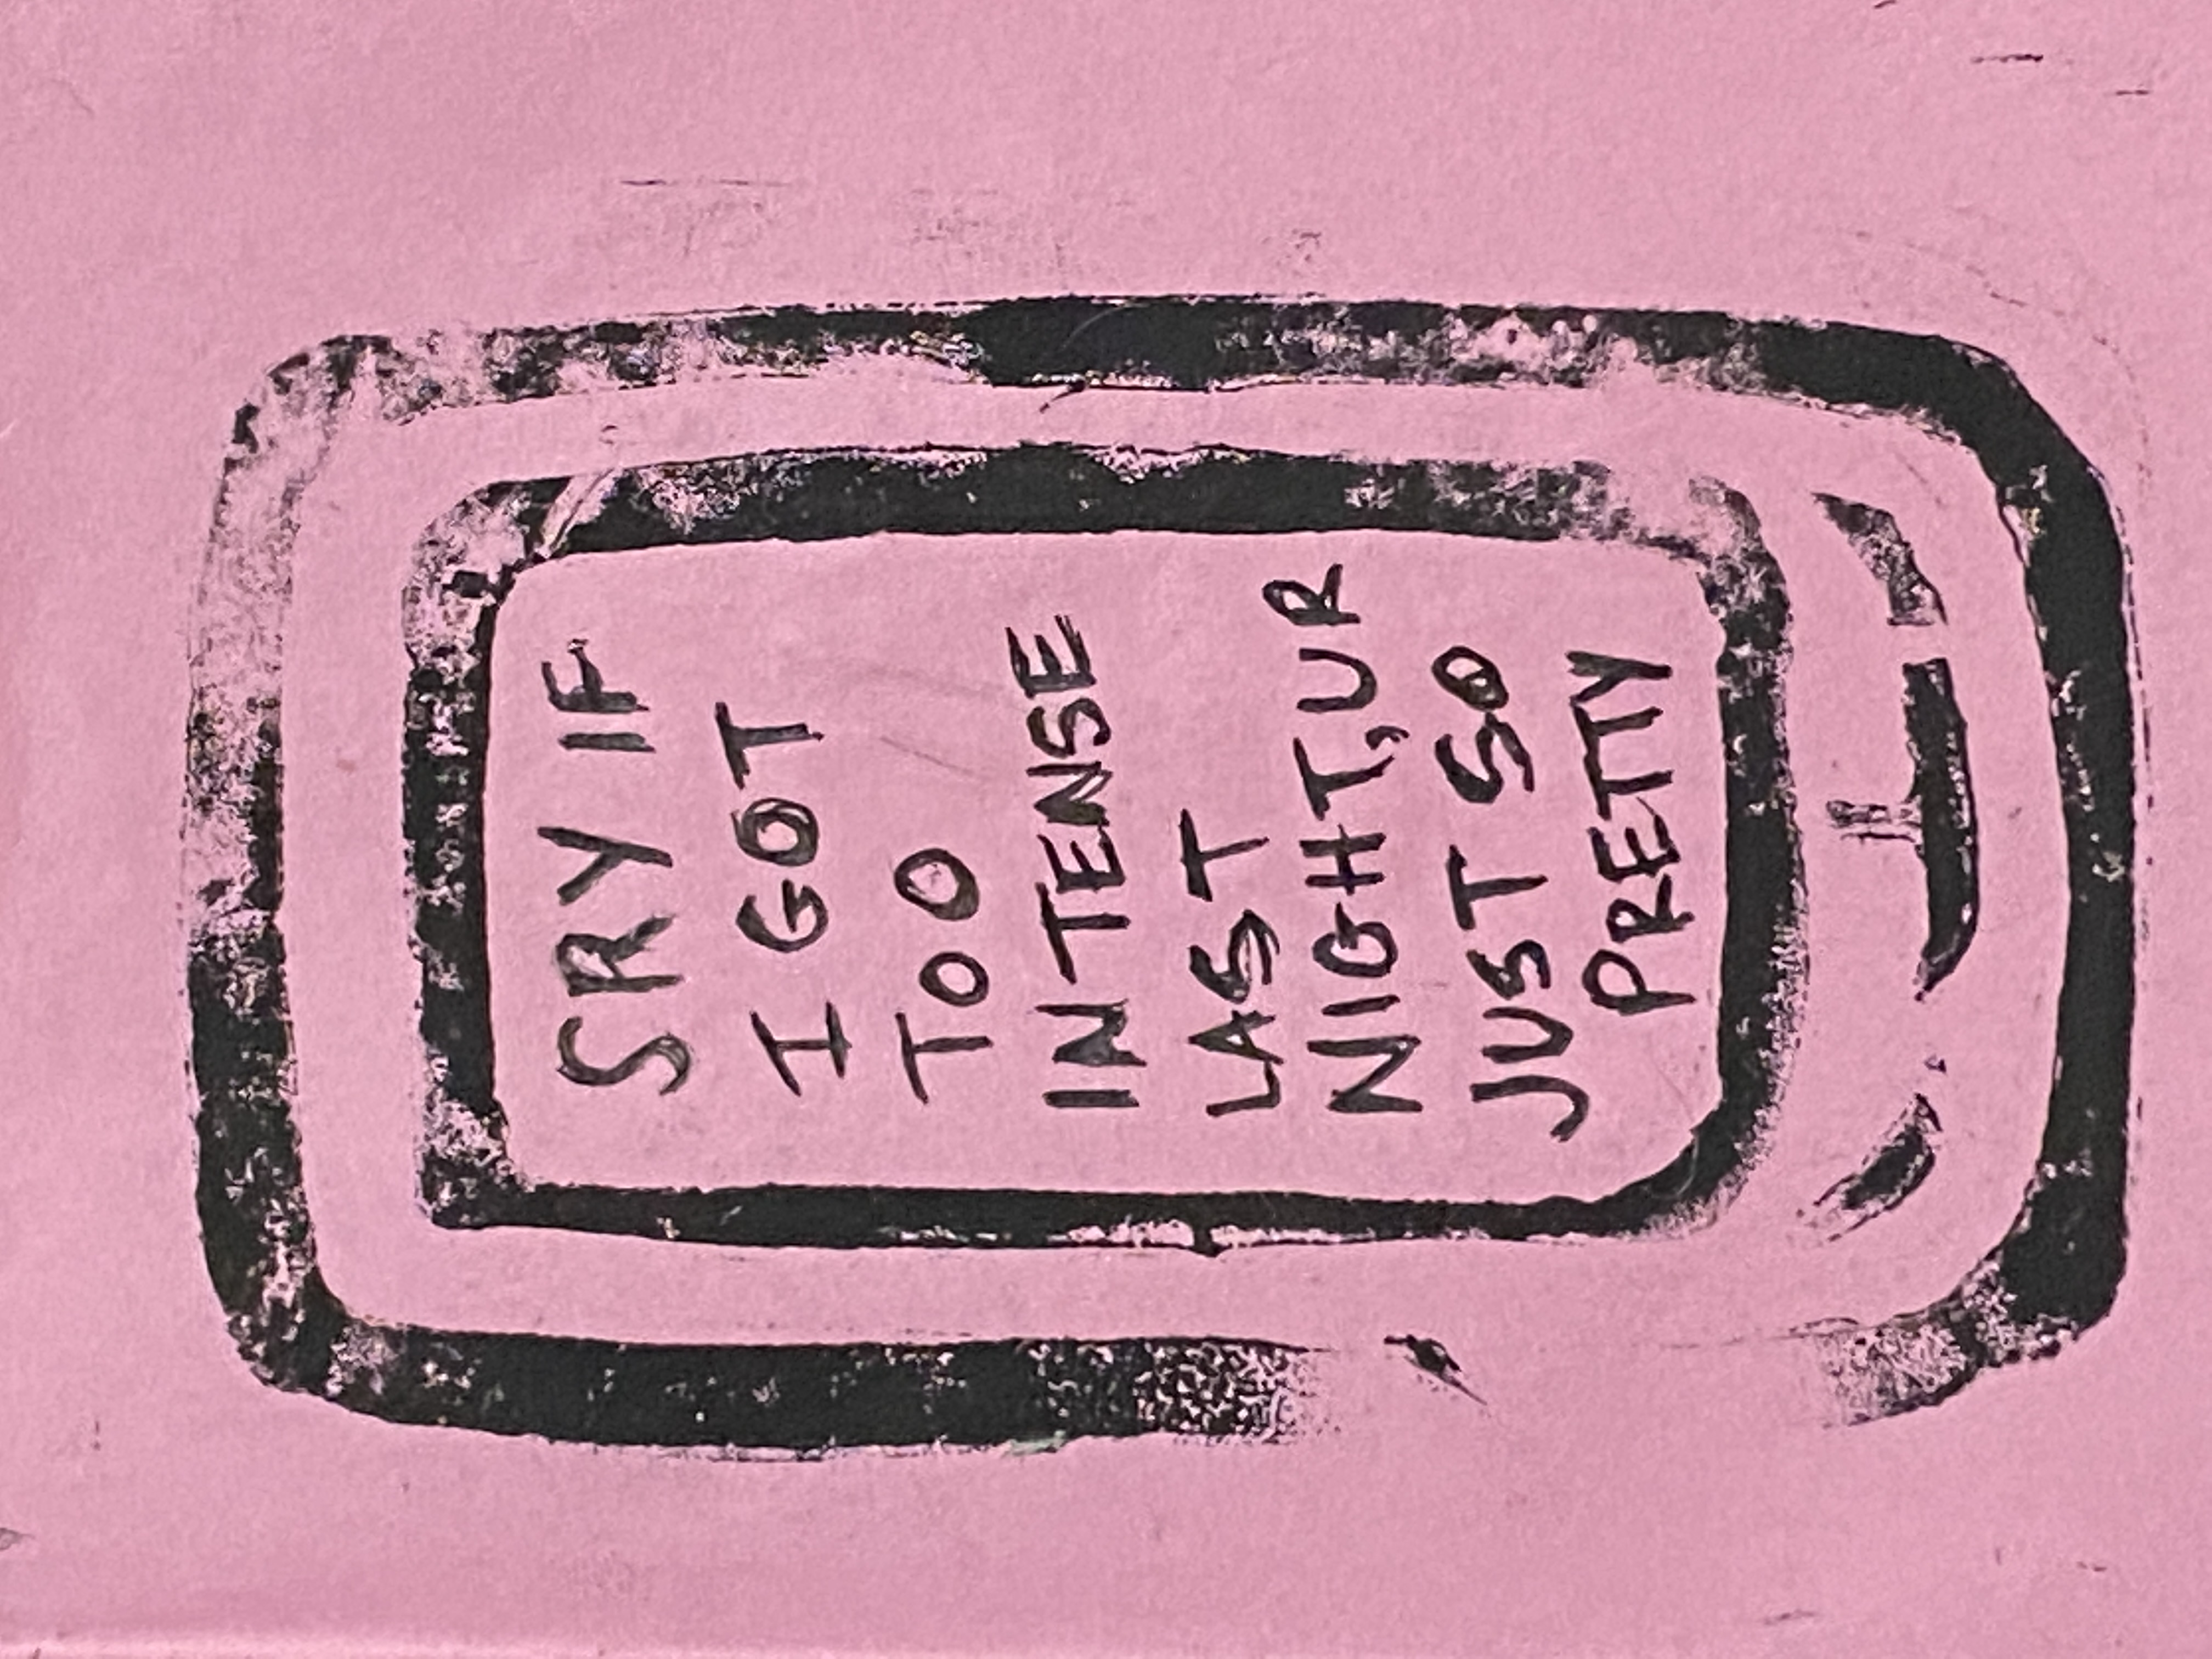 SRY IF
I GOT
TOO
INTENSE
LAST
NIGHT,UR
JUST SO
PRETTY